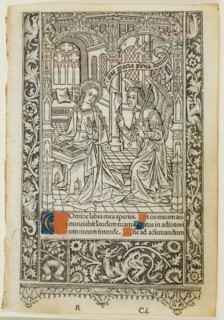 Domine labia mea aperies. Et os meum an
nunciabit laudem tuam. Deus in adiutori
um meum intende. Domine ad adiuuandum
B
C.i.